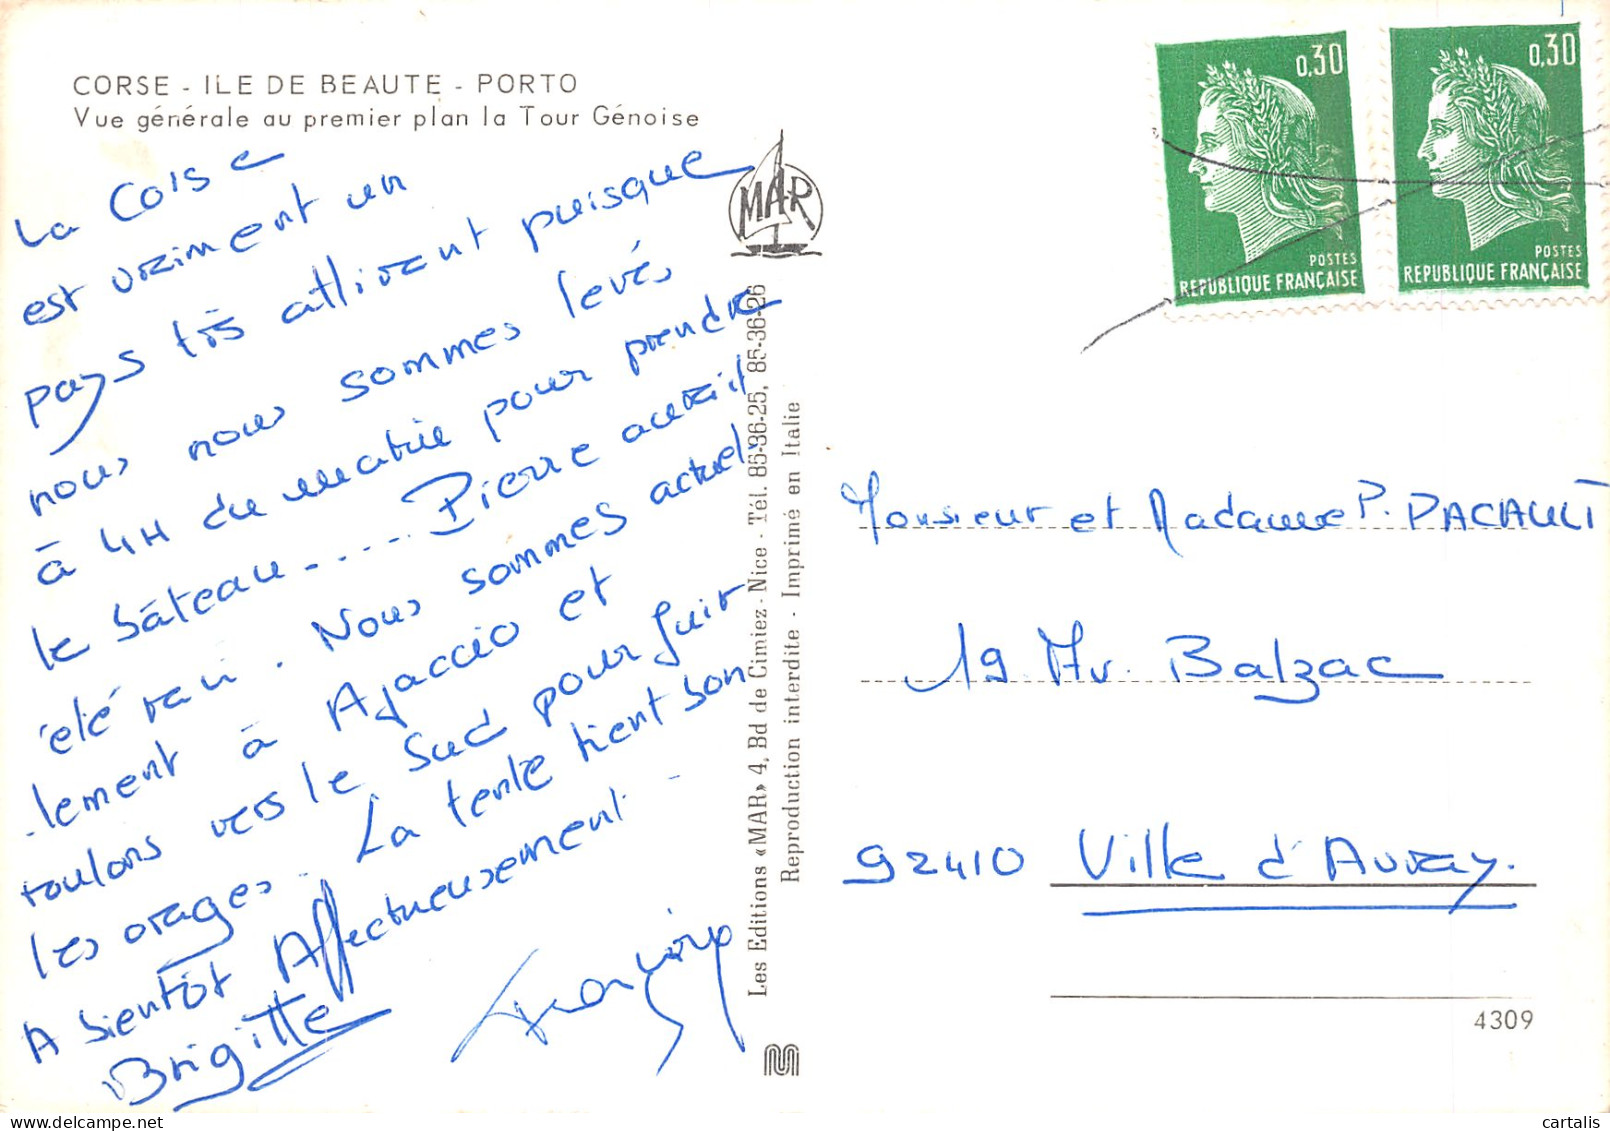 CORSE - ILE DE BEAUTE - PORTO
Vue générale au premier plan la Tour Génoise
La Corse
est vraiment un
pays très attirant puisque
nous nous sommes levés
à 4H du matin pour prendre
le bâteau ..... Pierre aurait
été ravi. Nous sommes actuel-
-lement à Ajaccio et
roulons vers le Sud pour fuir
les orages. La tente tient bon
A bientôt Affectueusement -
Brigitte
François
MAR
Les Editions «MAR» 4, Bd de Cimiez - Nice - Tél. 85-36-25, 85-36-26
Reproduction interdite - Imprimé en Italie
0,30
POSTES
REPUBLIQUE FRANÇAISE
0,30
POSTES
REPUBLIQUE FRANÇAISE
Monsieur et Madame P. PACAULT
19 Av. Balzac
92410 Ville d'Avray.
4309
cartalis